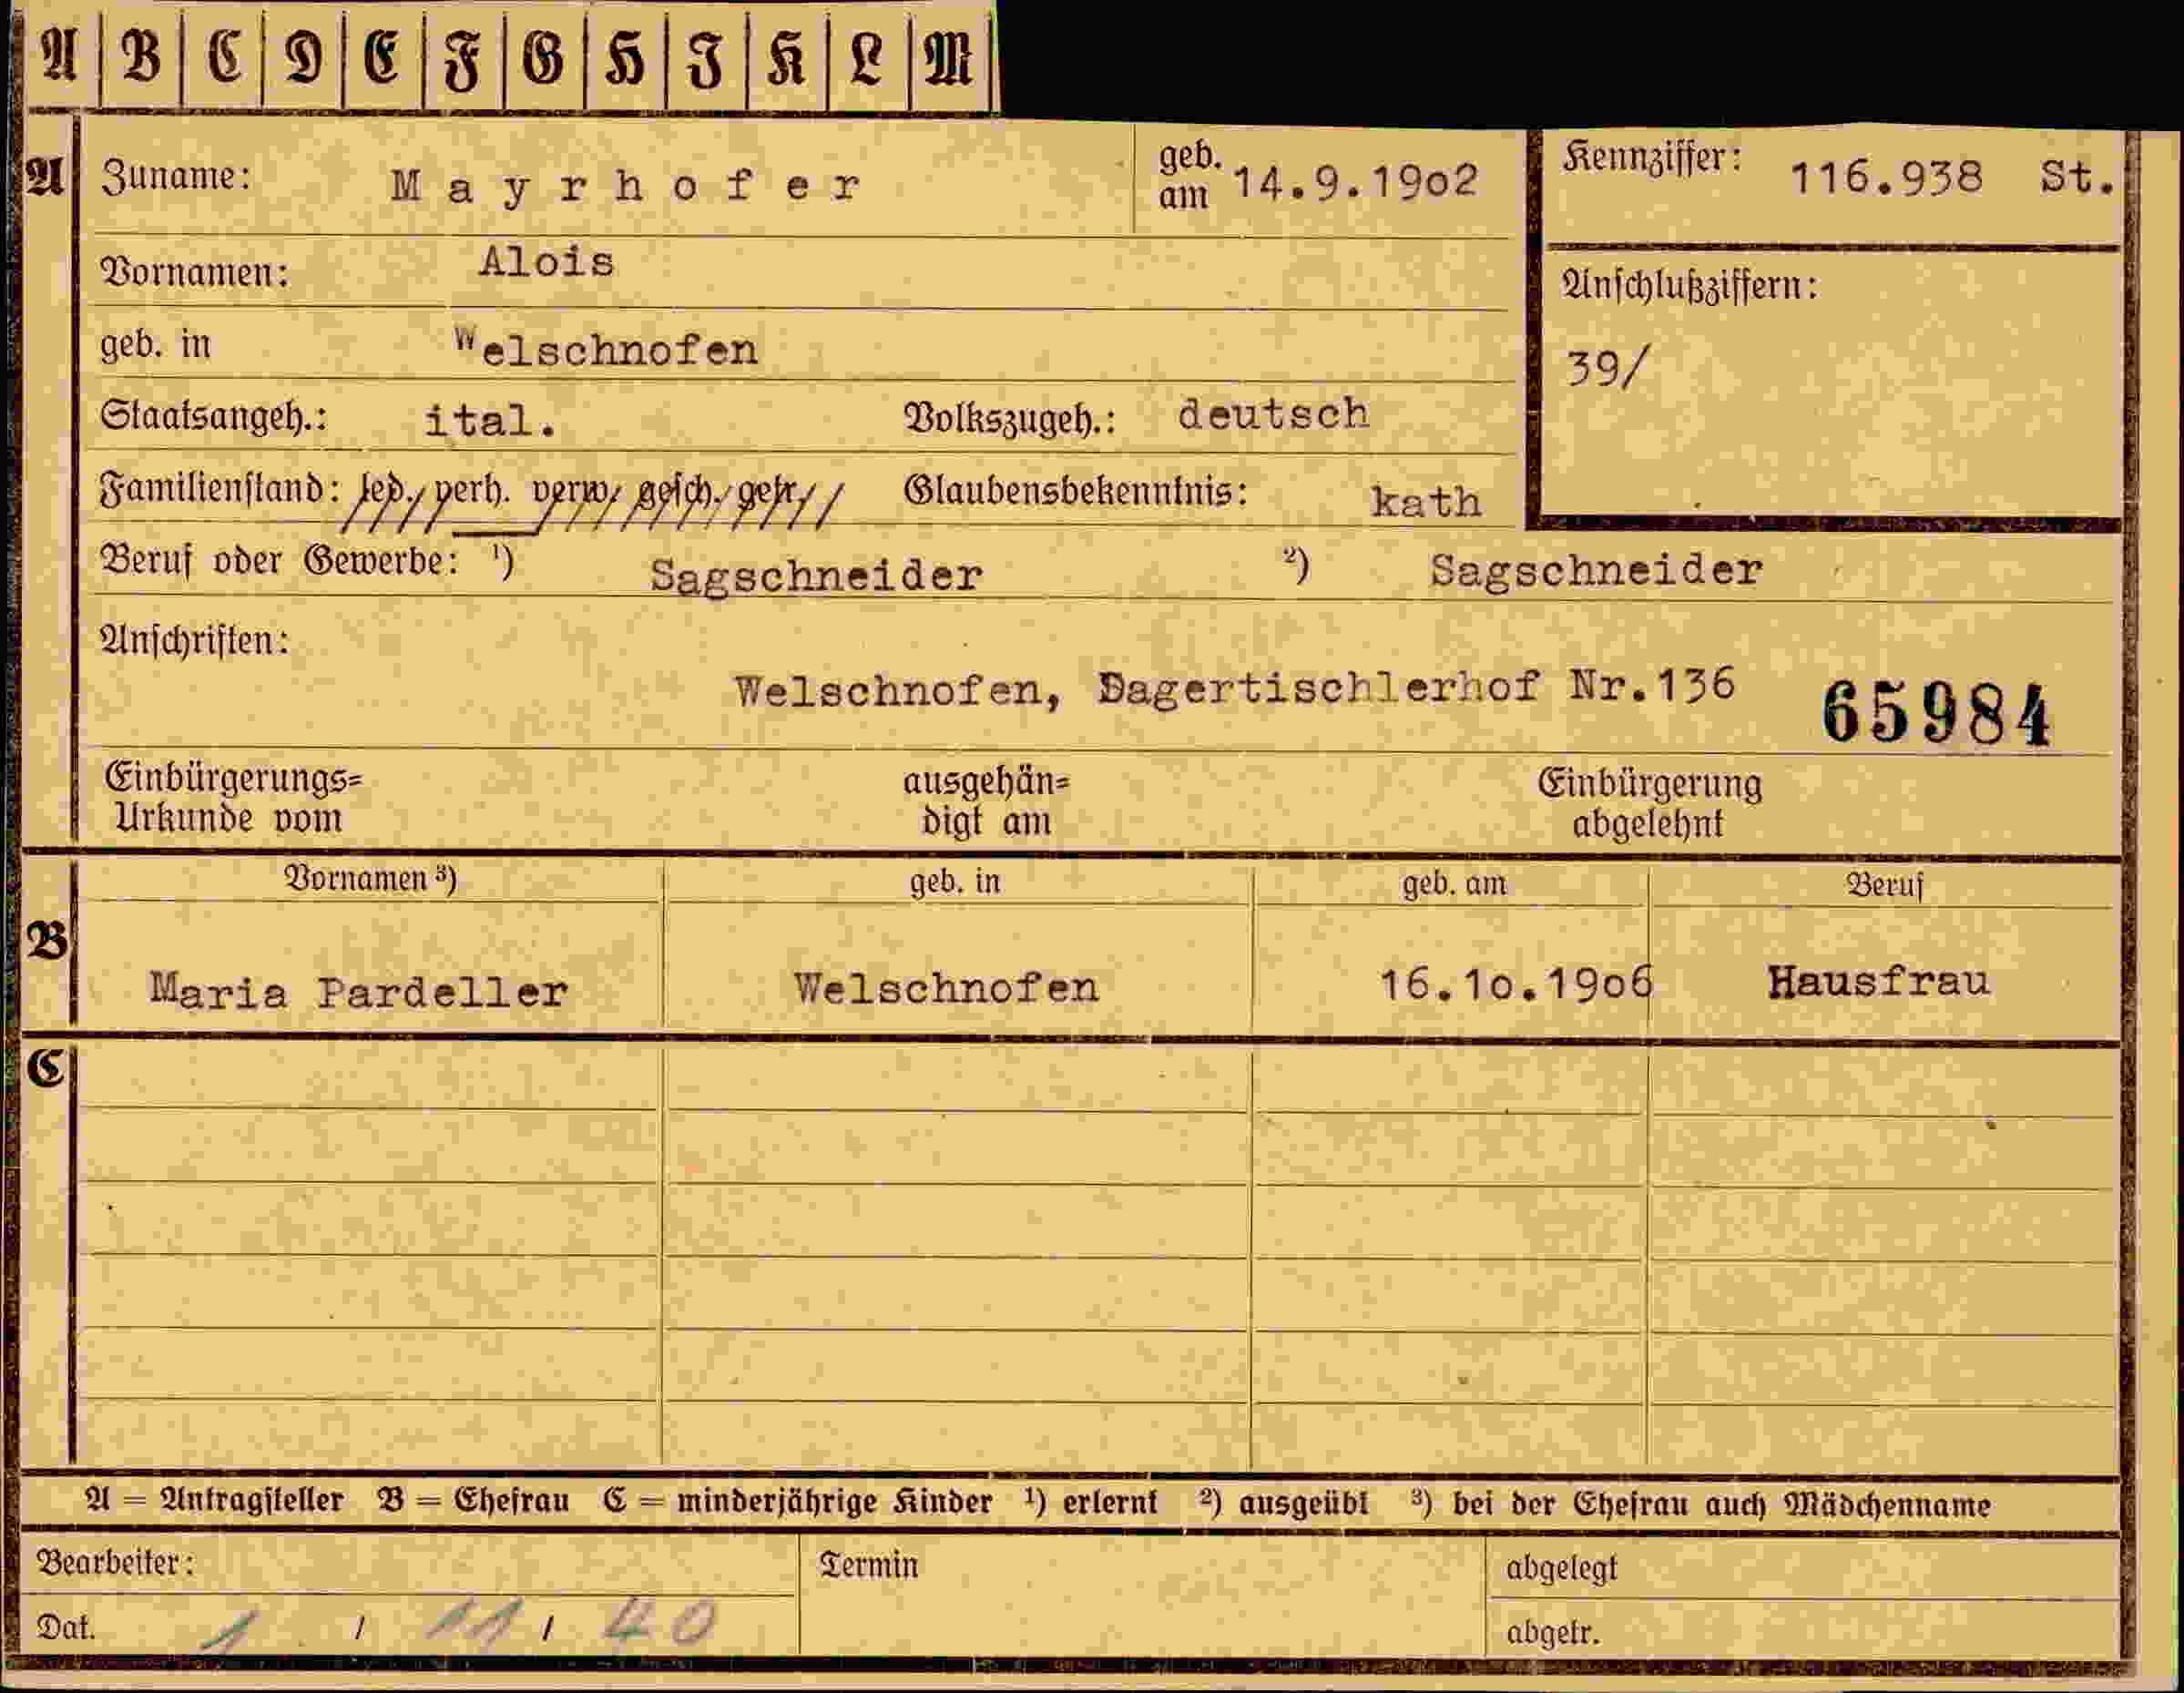 A B C D E F G H I K L M
A Zuname: Mayrhofer geb. am 14.9.19o2 Kennziffer: 116.938 St.
Vornamen: Alois Anschlußziffern:
geb. in Welschnofen 39/
Staatsangeh.: ital. Volkszugeh.: deutsch
Familienstand: led. verh. verw. gesch. getr. Glaubensbekenntnis: kath
Beruf oder Gewerbe: ¹) Sagschneider ²) Sagschneider
Anschriften:
Welschnofen, Dagertischlerhof Nr.136 65984
Einbürgerungs= ausgehän= Einbürgerung
Urkunde vom digt am abgelehnt
Vornamen ³) geb. in geb. am Beruf
B Maria Pardeller Welschnofen 16.1o.19o6 Hausfrau
C
A = Antragsteller B = Ehefrau C = minderjährige Kinder ¹) erlernt ²) ausgeübt ³) bei der Ehefrau auch Mädchenname
Bearbeiter: Termin abgelegt
Dat. 1 / 11 / 40 abgetr.